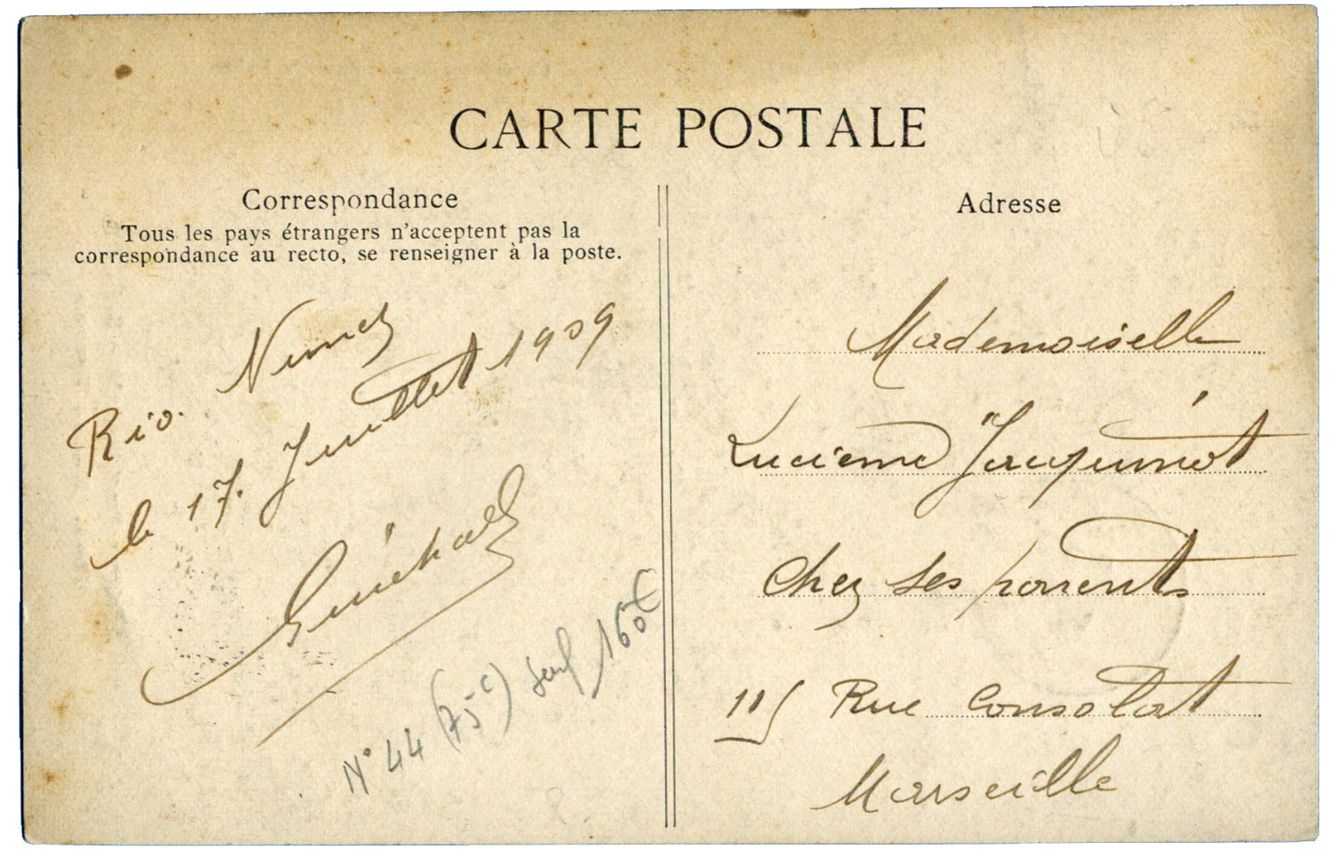 CARTE POSTALE
Correspondance
Tous les pays étrangers n'acceptent pas la
correspondance au recto, se renseigner à la poste.
Rio Nunez
le 17. Juillet 1909
N° 44 (75c) seul 160€
Adresse
Mademoiselle
Lucienne Jacquinot
Chez ses parents
115 Rue Consolat
Marseille